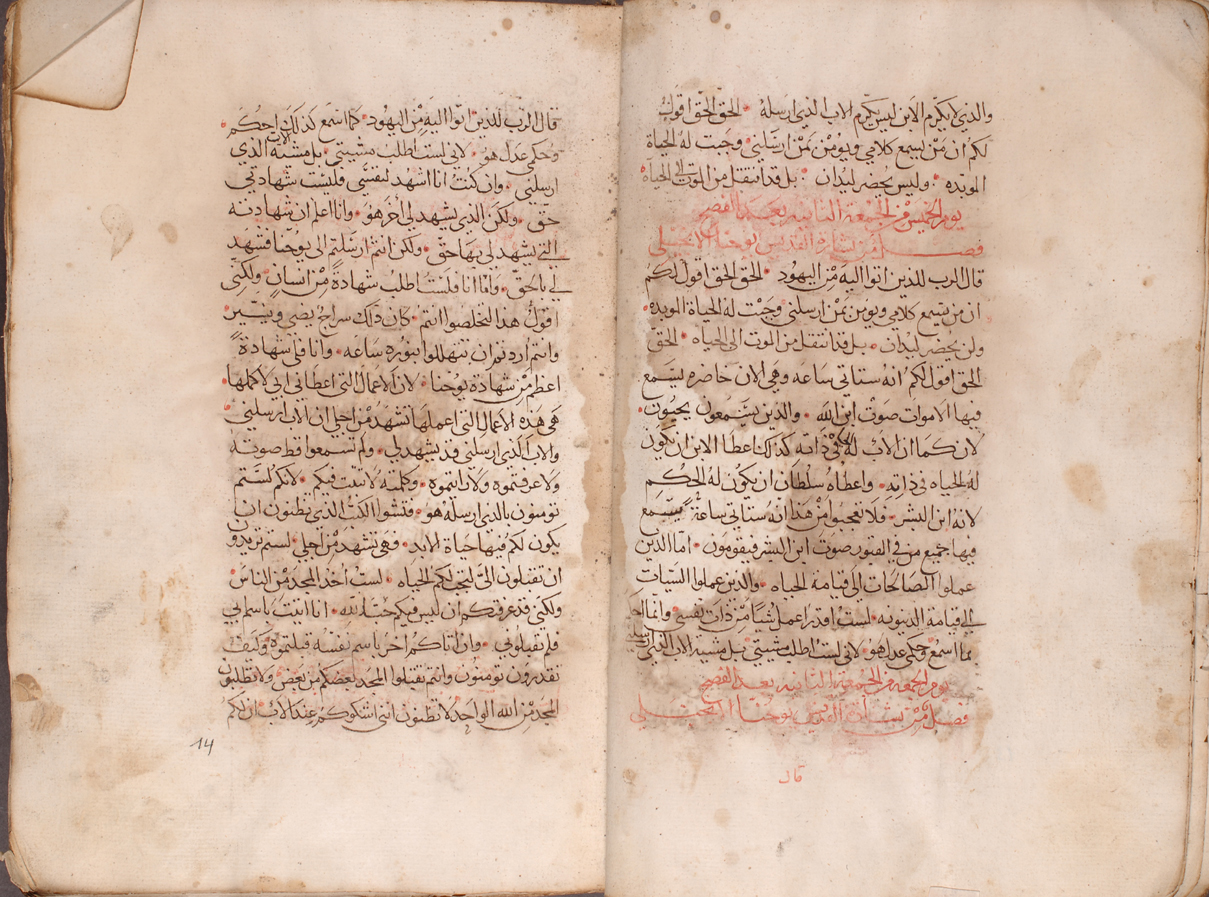 والذي لا يكرم الابن ليس يكرم الاب الذي ارسله • الحق الحق اقول
لكم ان من يسمع كلامي ويومن بمن ارسلني وجبت له الحياة
الموبده • وليس يحضر ليدان • بل قد انتقل من الموت الي الحياه
يوم الخميس من الجمعة الثانيه بعد الفصح
فصل من بشارة القديس يوحنا الانجيلي
قال الرب للذين اتوا اليه من اليهود • الحق الحق اقول لكم
ان من يسمع كلامي ويومن بمن ارسلني وجبت له الحياة الموبده
ولن يحضر ليدان • بل قد انتقل من الموت الى الحياه • الحق
الحق اقول لكم انه ستاتي ساعه وهي الان حاضره يسمع
فيها الاموات صوت ابن الله • والذين يسمعون يحيون •
لان كما ان الاب له الحياه في ذاته كذلك اعطا الابن ان يكون
له الحياه في ذاته • واعطاه سلطان ان يكون له الحكم
لانه ابن البشر • فلا تعجبوا من هذا انه ستاتي ساعة يسمع
فيها جميع من في القبور صوت ابن البشر فيقومون • اما الذين
عملوا الصالحات الى قيامة الحياه • والذين عملوا السيات
الي قيامة الدينونه • لست اقدر اعمل شيا من ذات نفسي • وانما احكم
بما اسمع وحكمي عدل هو • لاني لست اطلب مشيتي بل مشية الاب الذي ارسلني
يوم الجمعة من الجمعة الثانيه بعد الفصح
فصل من بشارة القديس يوحنا الانجيلي
قال
قال الرب للذين اتوا اليه من اليهود • كما اسمع كذلك احكم •
وحكمي عدل هو • لاني لست اطلب مشيتي • بل مشية الاب الذي
ارسلني • وان كنت انا اشهد لنفسي فليست شهادتي
حق • ولكن الذي يشهد لي اخر هو • وانا اعلم ان شهادته
التي يشهد لي بها حق • ولكن انتم ارسلتم الى يوحنا فشهد
لي بالحق • واما انا فلست اطلب شهادة من انسان • ولكني
اقول هذا لتخلصوا انتم • كان ذلك سراج يضي وينير •
وانتم اردتم ان تتهللوا بنوره ساعه • وانا فلي شهادة
اعظم من شهادة يوحنا • لان الاعمال التي اعطاني ابي لاكملها •
هي هذه الاعمال التي اعملها تشهد من اجلي ان الاب ارسلني •
والاب الذي ارسلني قد يشهد لي • ولم تسمعوا قط صوته
ولا عرفتموه ولا رايتموه • وكلمته لا تثبت فيكم • لانكم لستم
تومنون بالذي ارسله هو • فتشوا الكتب الذي تظنون ان
يكون لكم فيها حياة الابد • فهي تشهد من اجلي • لستم تريدون
ان تقبلون الي لتجب لكم الحياه • لست اخذ المجد من الناس
ولكني قد عرفتكم ان ليس فيكم حب الله • انا اتيت باسم ابي
فلم تقبلوني • وان اتاكم اخر باسم نفسه قبلتموه • وكيف
تقدرون تومنون وانتم تقبلوا المجد بعضكم من بعض • ولا تطلبون
المجد من الله الواحد • لا تظنون انني اشكوكم عند الاب • ان لكم
14